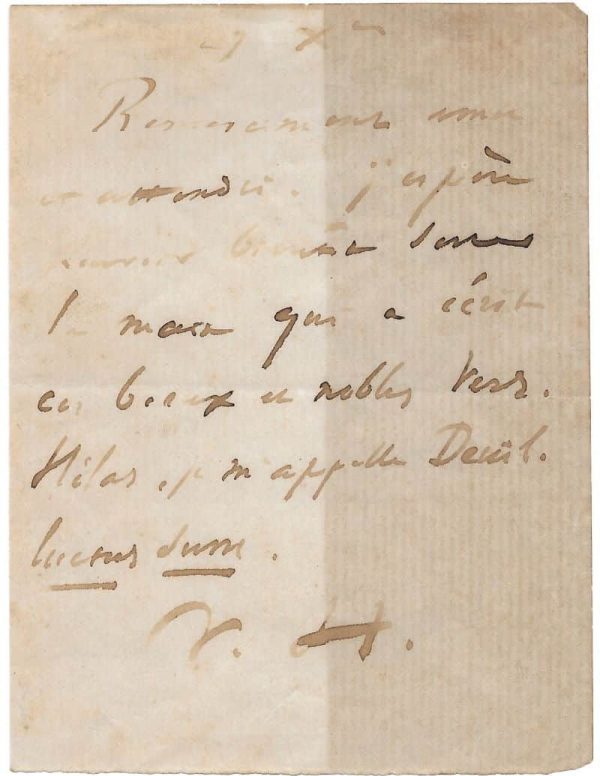 29 Xbre
Remerciement ému
et attendri. J'espère
pouvoir bientôt serrer
la main qui a écrit
ces beaux et nobles vers.
Hélas, je m'appelle Deuil.
luctus sum.
V. H.